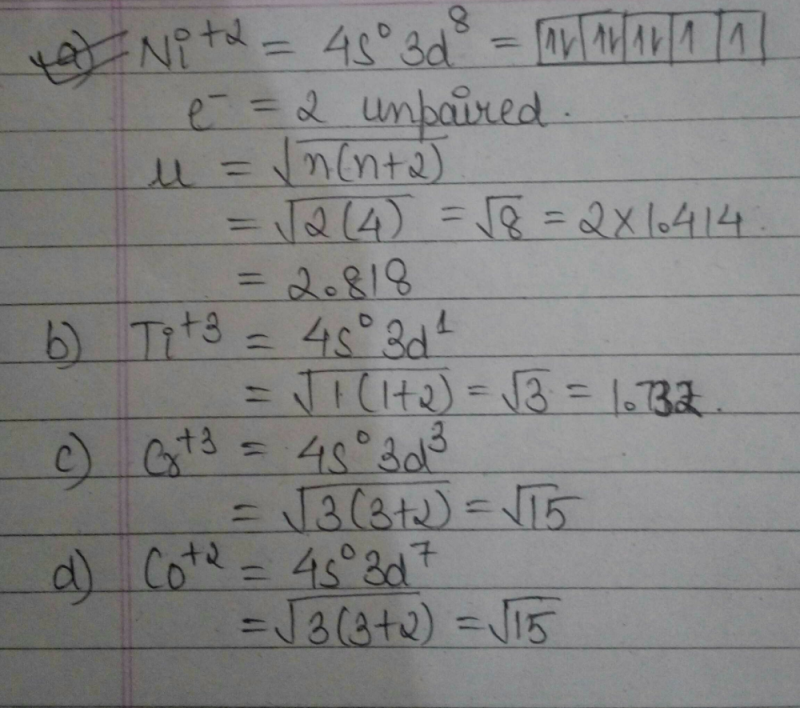 a) Ni⁺² = 4s⁰ 3d⁸ = [1l|1l|1l|1|1]
e⁻ = 2 unpaired.
μ = √n(n+2)
= √2(4) = √8 = 2×1.414
= 2.818
b) Ti⁺³ = 4s⁰ 3d¹
= √1(1+2) = √3 = 1.732.
c) Cr⁺³ = 4s⁰ 3d³
= √3(3+2) = √15
d) Co⁺² = 4s⁰ 3d⁷
= √3(3+2) = √15